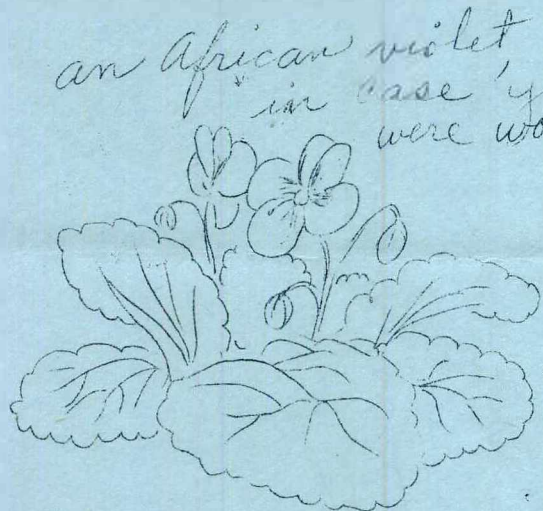 an African violet
in case
were